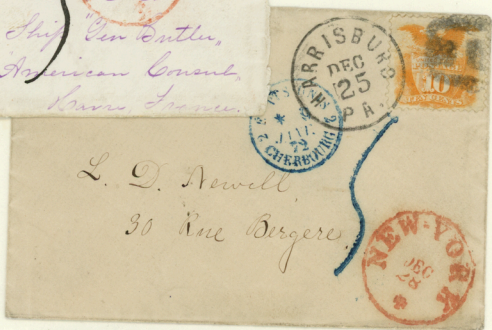 Ship "Gen Butler,
American Consul,
Havre, France.
HARRISBURG
DEC
25
PA.
10
TEN CENTS
JANV.
72
CHERBOURG
L. D. Newell
30 Rue Bergere
NEW-YORK
DEC
28